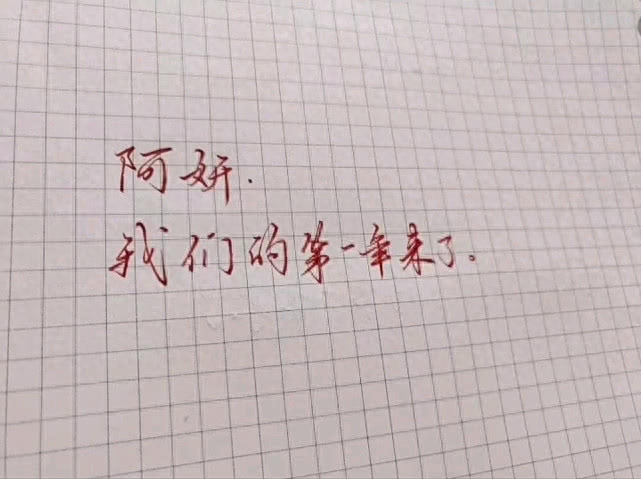 阿妍.
我们的第一年来了.